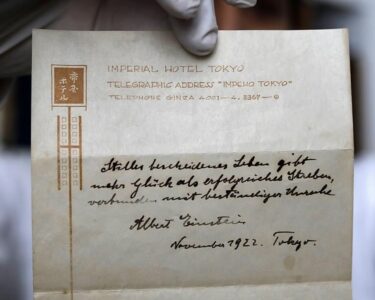 帝国
ホテル
IMPERIAL HOTEL TOKYO
TELEGRAPHIC ADDRESS "IMPEHO TOKYO"
TELEPHONE GINZA 4001-4, 3367-
Stilles bescheidenes Leben gibt
mehr Glück als erfolgreiches Streben,
verbunden mit beständiger Unruhe
Albert Einstein
November 1922. Tokyo.